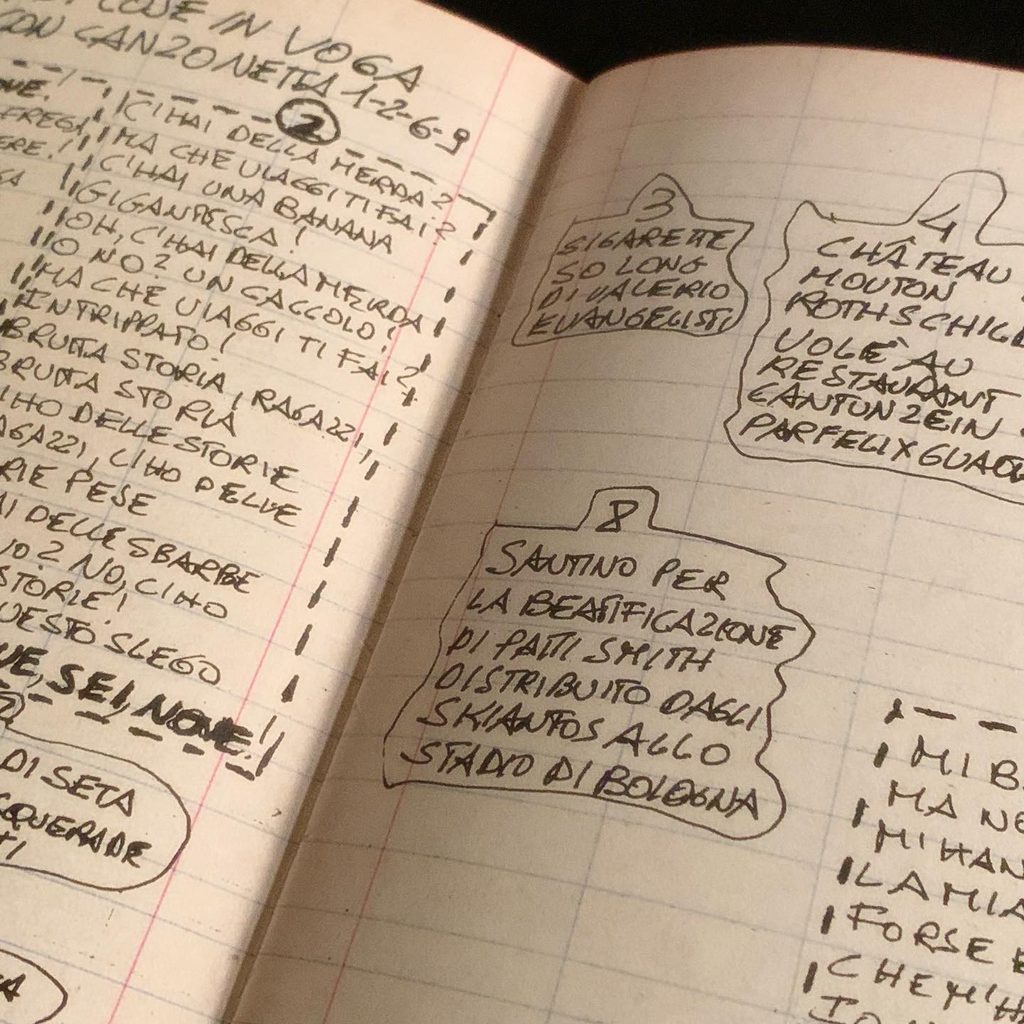 COSE IN VOGA
CON CANZONETTA 1-2-6-9
2
C'HAI DELLA MERDA?
MA CHE VIAGGI TI FAI?
C'HAI UNA BANANA
GIGANTESCA!
OH, C'HAI DELLA MERDA
O NO? UN CACCOLO!
MA CHE VIAGGI TI FAI?
INTRIPPATO!
BRUTTA STORIA, RAGAZZI,
BRUTTA STORIA
CIHO DELLE STORIE
RAGAZZI, CIHO DELLE
PESE
DELLE SBARBE
NO, CIHO
STORIE!
QUESTO SLEGO
SEI, NONE!
DI SETA
3
SIGARETTE
SO LONG
DI VALERIO
EVANGELISTI
4
CHÂTEAU
MOUTON
ROTHSCHILD
VOLÉ AU
RESTAURANT
CANTUNZEIN
PAR FELIX
8
SANTINO PER
LA BEATIFICAZIONE
DI PATTI SMITH
DISTRIBUITO DAGLI
SKIANTOS ALLO
STADIO DI BOLOGNA
MI
MA
MI HAN
LA MIA
FORSE
CHE M'H